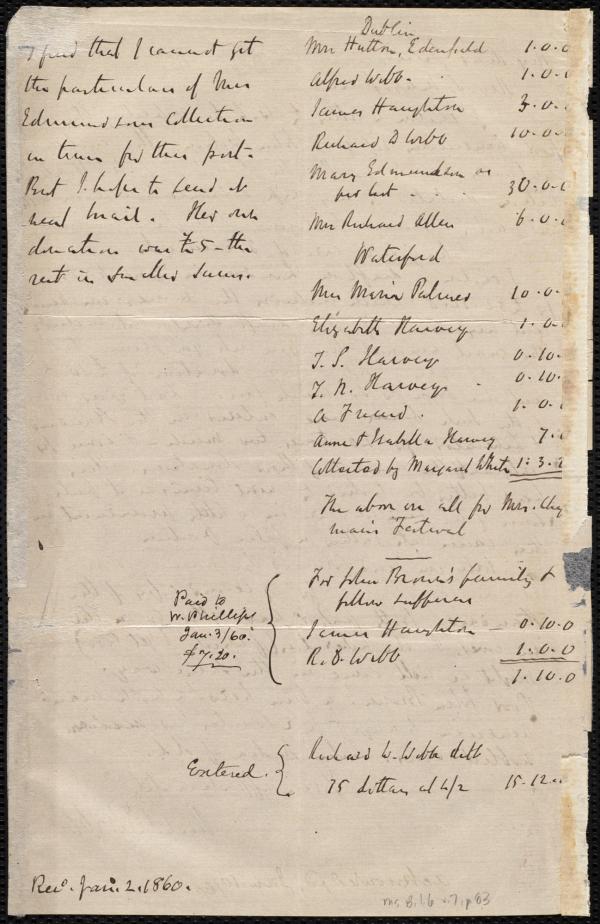 I find that I cannot get
the particulars of Mrs
Edmundsons Collection
in time for this post.
But I hope to send it
next mail. Her own
donation was £5 - the
rest in smaller sums.
Dublin
Mrs Hutton, Edenfield 1.0.0
Alfred Webb. 1.0.
James Haughton 3.0.
Richard D Webb 10.0.
Mary Edmundson as
per list 30.0.0
Mrs Richard Allen 6.0.
Waterford
Mrs Maria Palmer 10.0.
Elizabeth Harvey 1.0.
T. S. Harvey 0.10.
T. N. Harvey. 0.10.
A Friend. 1.0.
Anne & Isabella Harvey 7.
Collected by Margaret White 1.3.
The above are all for Mrs. Chap
man's Festival
For John Brown's family &
fellow sufferers
James Haughton - 0.10.0
R. D. Webb 1.0.0
1.10.0
Paid to
W. Phillips
Jan. 3/60.
$7.20.
Richard D. Webb debt
75 dollars at 4/2 15.12.
Entered.
Recd. Jan. 2. 1860.
Ms. B.1.6 v.7, p 83